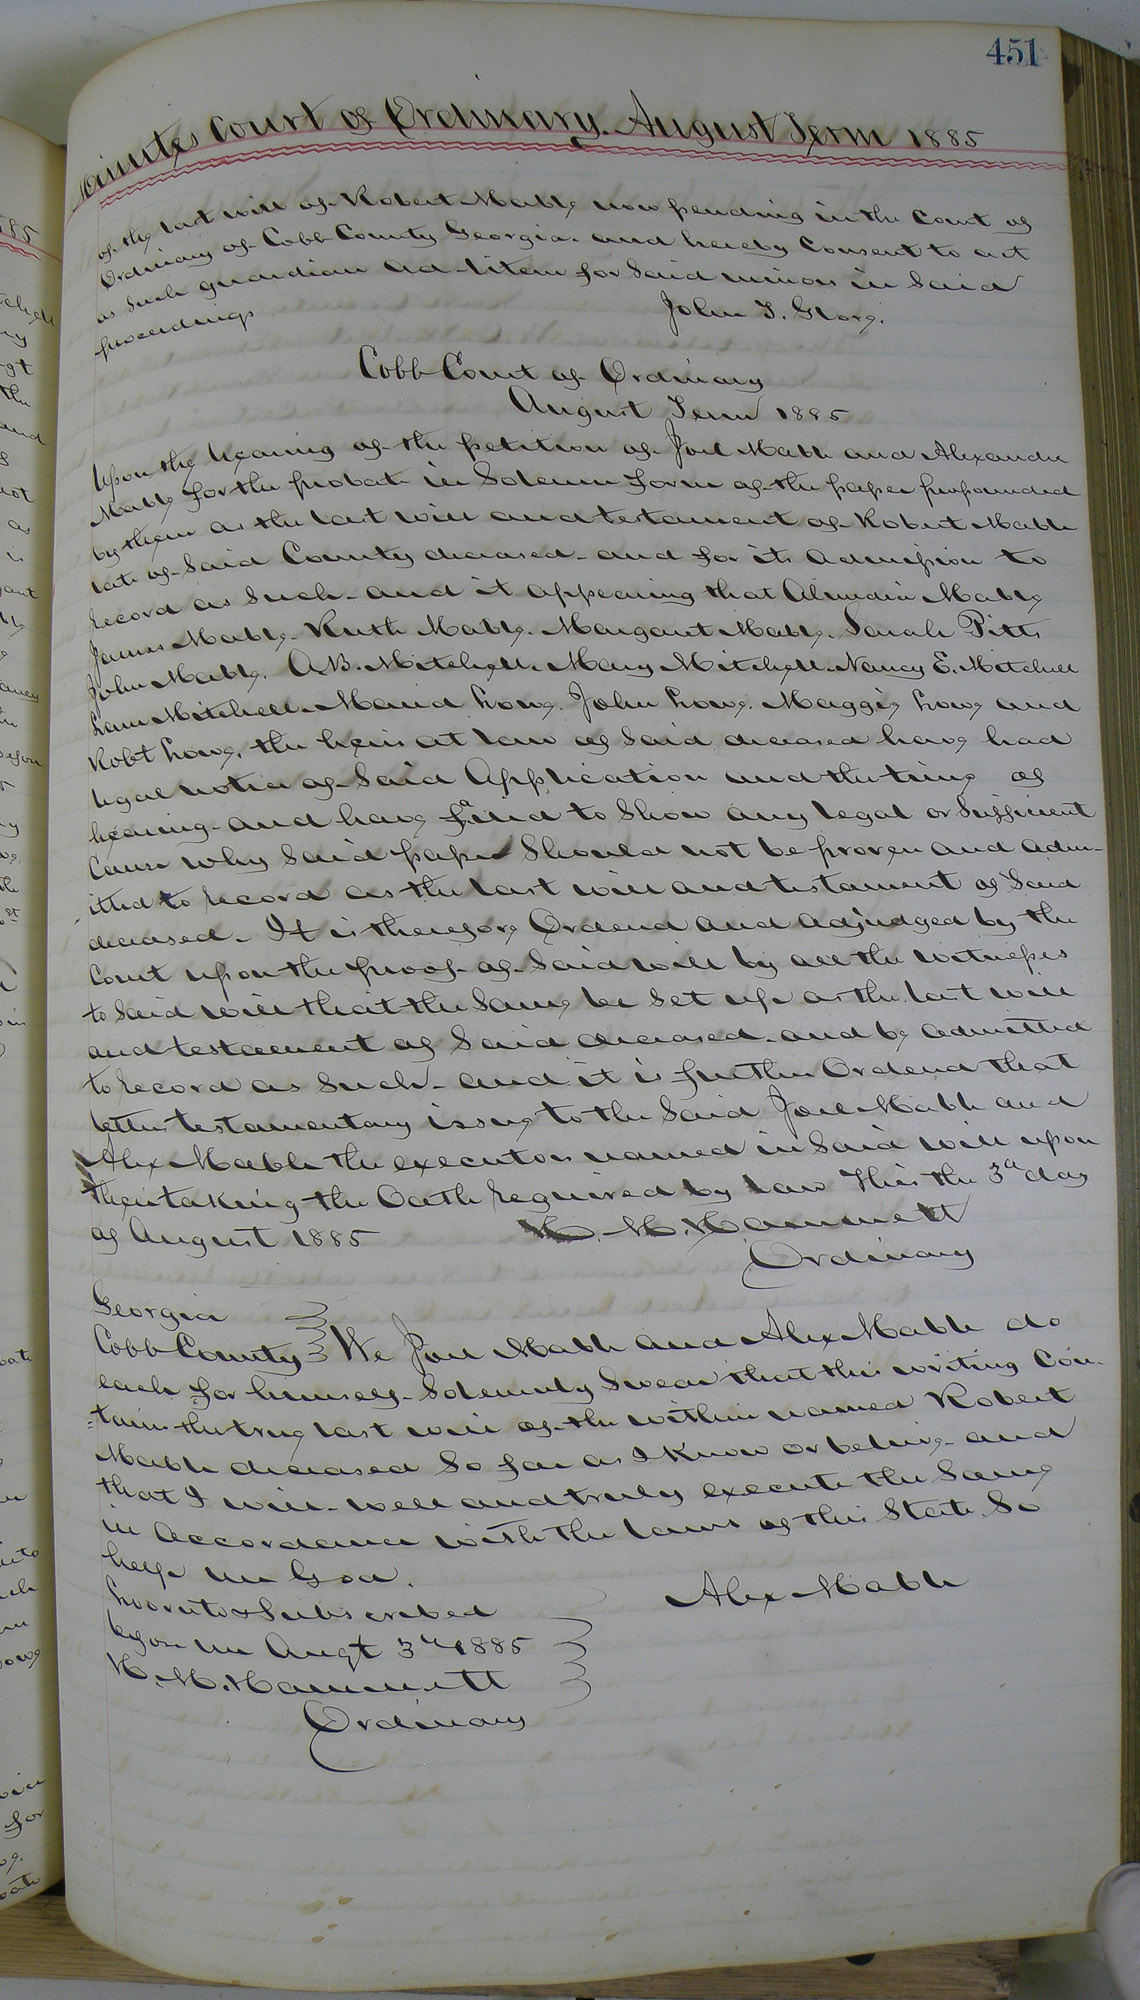 451
Minutes Court of Ordinary. August Term 1885
of the last will of Robert Mable now pending in the Court of
Ordinary of Cobb County Georgia. and hereby Consent to act
as such guardian ad-litem for said minors in said
proceedings
John T. Glore.
Cobb Court of Ordinary
August Term 1885
Upon the hearing of the petition of Joel Mable and Alexander
Mable for the probate in Solemn form of the paper propounded
by them as the last will and testament of Robert Mable
late of said County deceased and for its admission to
record as such and it appearing that Mable
James Mable. Ruth Mable. Margaret Mable. Sarah Pitts
John Mable. A.B. Mitchell. Mary Mitchell. Nancy E. Mitchell
Mitchell. Maud Lowe. John Lowe. Maggie Lowe and
Robt Lowe. the heirs at law of said deceased have had
legal notice of said Application and the time of
hearing and have failed to show any legal or sufficient
cause why said paper should not be proven and adm-
itted to record as the last will and testament of said
deceased. It is therefore Ordered and adjudged by the
Court upon the proof of said will by all the witnesses
to said will that the same be set up as the last will
and testament of said deceased. and be admitted
to record as such and it is further Ordered that
letters testamentary issue to the said Joel Mable and
Alex Mable the executors named in said will upon
their taking the Oath required by law This the 3d day
of August 1885 H. M. Hammett
Ordinary
Georgia
Cobb County We Joel Mable and Alex Mable do
each for himself Solemnly Swear that this writing Con-
=tains the true last will of the within named Robert
Mable deceased so far as I know or believe and
that I will well and truly execute the same
in accordance with the laws of this State. So
help me God.
Sworn to & Subscribed
before me Augt 3d 1885
Alex Mable
H. M. Hammett
Ordinary